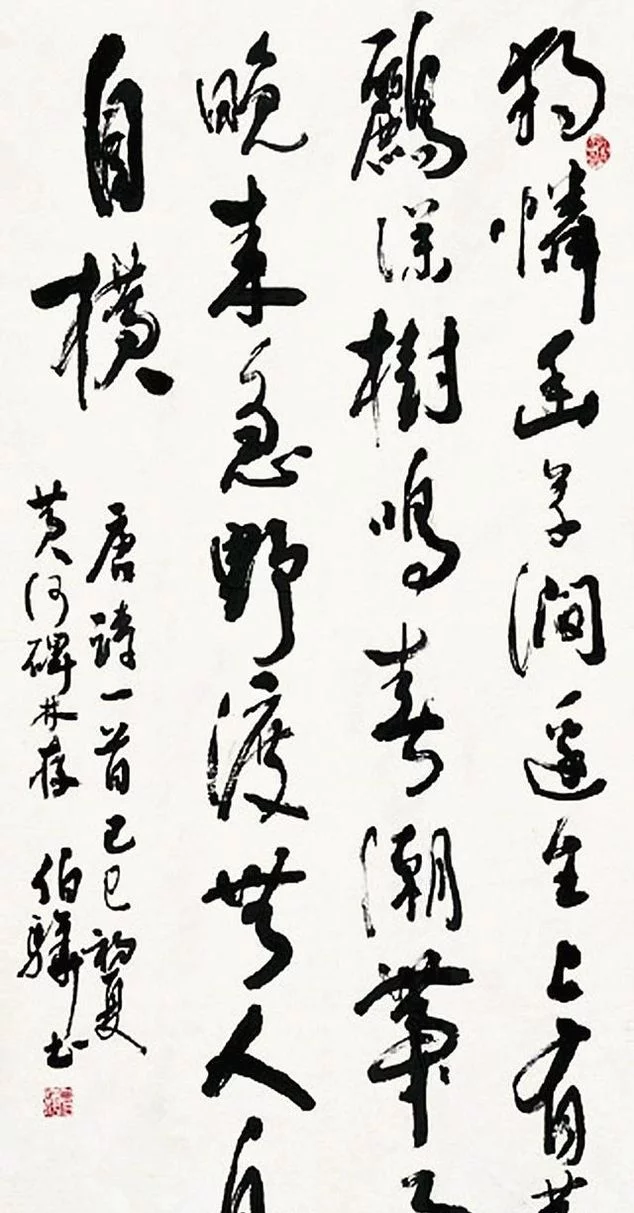 独憐幽草澗邊生上有黄
鸝深樹鳴春潮帶
晚来急野渡無人舟
自橫
唐詩一首己巳初夏
黄河碑林存 伯驊书